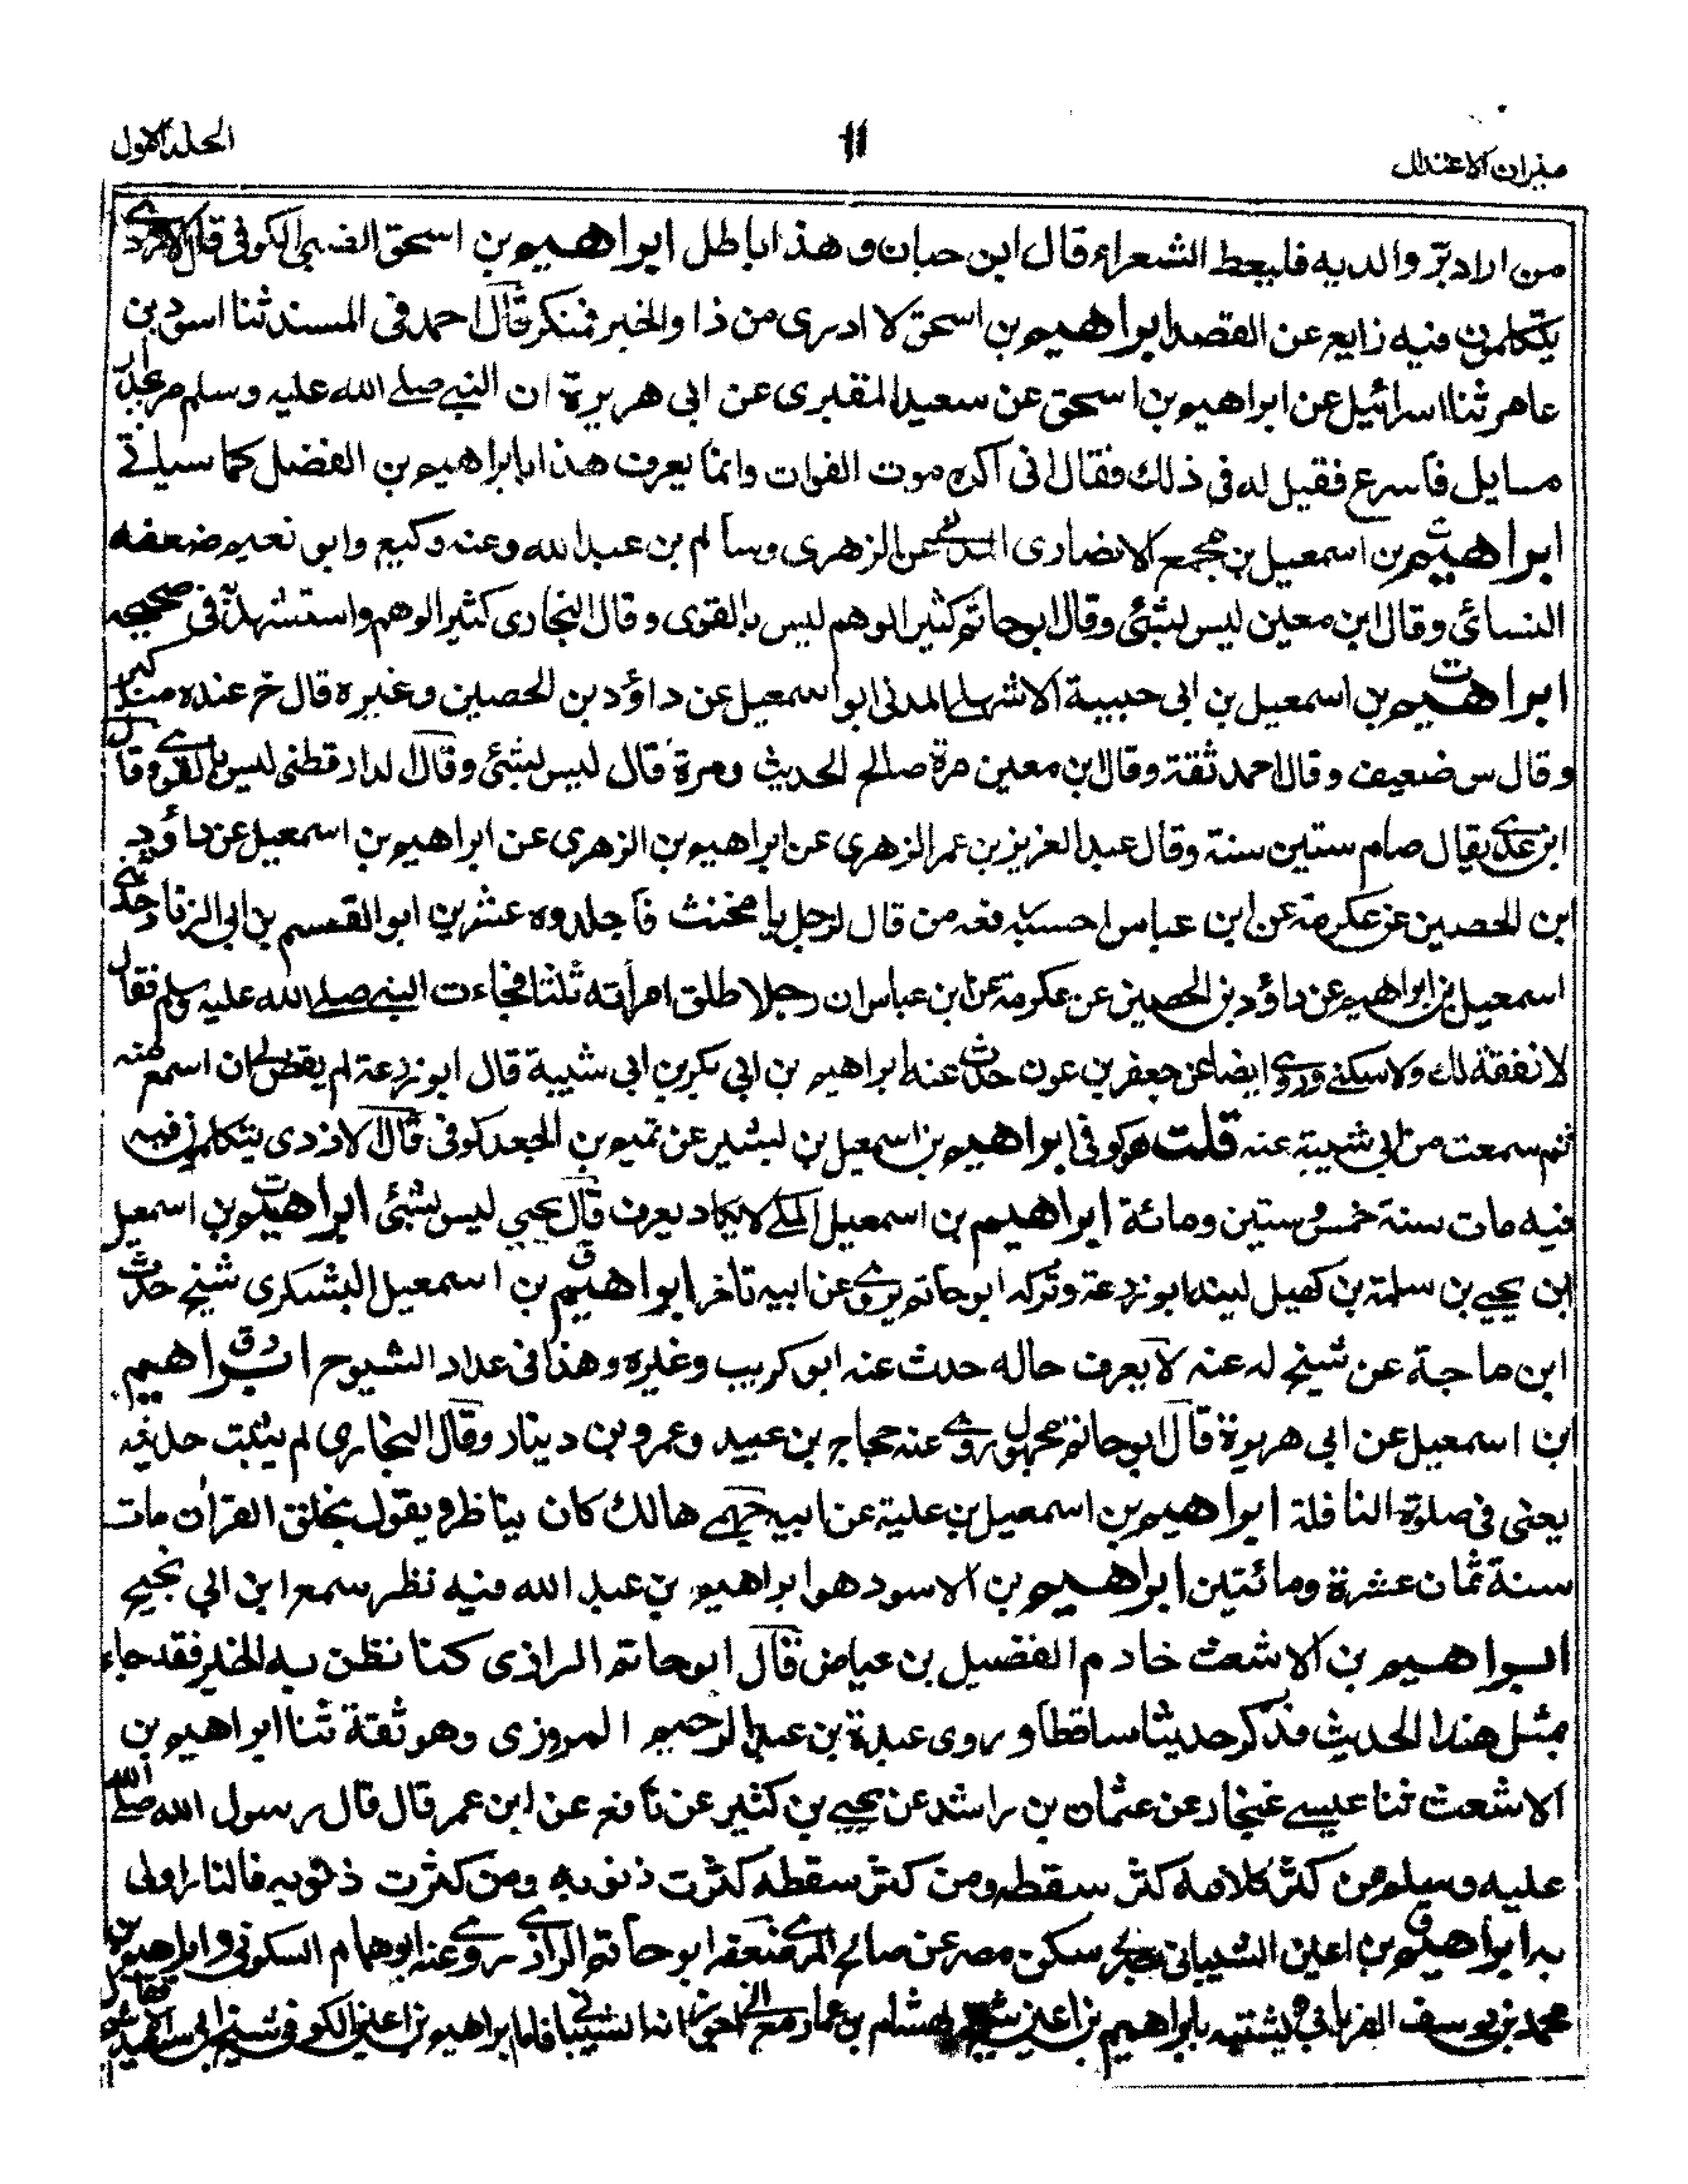 ميزان الاعتدال
١١
المجلد الاول
من اراد بر والديه فليعط الشعراء قال ابن حبان وهذا باطل ابراهيم بن اسحق الضبي الكوفي قال الازدي
يتكلمون فيه زايغ عن القصد ابراهيم بن اسحق لا ادري من ذا والخبر فمنكر قال احمد في المسند ثنا اسود بن
عامر ثنا اسرائيل عن ابراهيم بن اسحق عن سعيد المقبري عن ابي هريرة ان النبي صلے الله عليه وسلم مر بجدار
مايل فاسرع فقيل له في ذلك فقال اني اكره موت الفوات وانما يعرف هذا بابراهيم بن الفضل كما سياتے
ابراهيم بن اسمعيل بن مجمع الانصاري المدني عن الزهري وسالم بن عبد الله وعنه وكيع وابو نعيم ضعفه
النسائي وقال ابن معين ليس بشئ وقال ابو حاتم كثير الوهم ليس بالقوى وقال البخاري كثير الوهم واستشهد به في صحيحه
ابراهيم بن اسمعيل بن ابي حبيبة الاشهلي المدني ابو اسمعيل عن داؤد بن الحصين وغيره قال خ عنده مناكير
وقال س ضعيف وقال احمد ثقة وقال ابن معين مرة صالح الحديث ومرة قال ليس بشئ وقال الدارقطني ليس بالقوے وقال
ابن عدي يقال صام ستين سنة وقال عبد العزيز بن عمر الزهري عن ابراهيم بن الزهري عن ابراهيم بن اسمعيل عن داؤد
ابن الحصين عن عكرمة عن ابن عباس احسبه رفعه من قال لرجل يا مخنث فاجلدوه عشرين ابو القسم بن ابي الزناد حدثني
اسمعيل بن ابراهيم عن داؤد بن الحصين عن عكرمة عن ابن عباس ان رجلا طلق امرأته ثلثا فجاءت النبي صلے الله عليه وسلم فقال
لا نفقة لك ولا سكنے وروى ايضا عن جعفر بن عون حدث عنه ابراهيم بن ابي بكر بن ابي شيبة قال ابو زرعة لم يقض لي ان اسمع منه
ثم سمعت من ابن ابي شيبة عنه قلت هو كوفي ابراهيم بن اسمعيل بن بشير عن تميم بن الجعد كوفي قال الازدي يتكلمون فيه
فيه مات سنة خمس وستين ومائة ابراهيم بن اسمعيل المكے لا يكاد يعرف قال يحيي ليس بشئ ابراهيم بن اسمعيل
بن يحيے بن سلمة بن كهيل لينه ابو زرعة وتركه ابو حاتم يروے عن ابيه تاخر ابراهيم بن اسمعيل اليشكري شيخ حدث
ابن ماجة عن شيخ له عنه لا يعرف حاله حدث عنه ابو كريب وغيره وهذا في عداد الشيوخ ابراهيم
ابن اسمعيل عن ابي هريرة قال ابو حاتم مجهول روے عنه حجاج بن عبيد وعمرو بن دينار وقال البخاري لم يثبت حديثه
يعني في صلوة النافلة ابراهيم بن اسمعيل بن علية عن ابيه جهمے هالك كان يناظر ويقول بخلق القران مات
سنة ثمان عشرة ومائتين ابراهيم بن الاسود هو ابراهيم بن عبد الله فيه نظر سمع ابن ابي نجيح
ابراهيم بن الاشعث خادم الفضيل بن عياض قال ابو حاتم الرازي كنا نظن به الخير فقد جاء
بمثل هذا الحديث فذكر حديثا ساقطا و روى عبدة بن عبد الرحيم المروزي وهو ثقة ثنا ابراهيم بن
الاشعث ثنا عيسے غنجار عن عثمان بن راشد عن يحيے بن كثير عن نافع عن ابن عمر قال قال رسول الله صلے الله
عليه وسلم من كثر كلامه كثر سقطه ومن كثر سقطه كثرت ذنوبه ومن كثرت ذنوبه فالنار اولى
به ابراهيم بن اعين الشيباني سكن مصر عن صالح المري ضعفه ابو حاتم الرازي روے عنه ابو همام السكوني وابراهيم بن
محمد بن يوسف الفريابي يشتبه بابراهيم بن اعين شيخ لهشام بن عمار فاما ابراهيم بن اعين الكوفي شيخ ابي سعيد